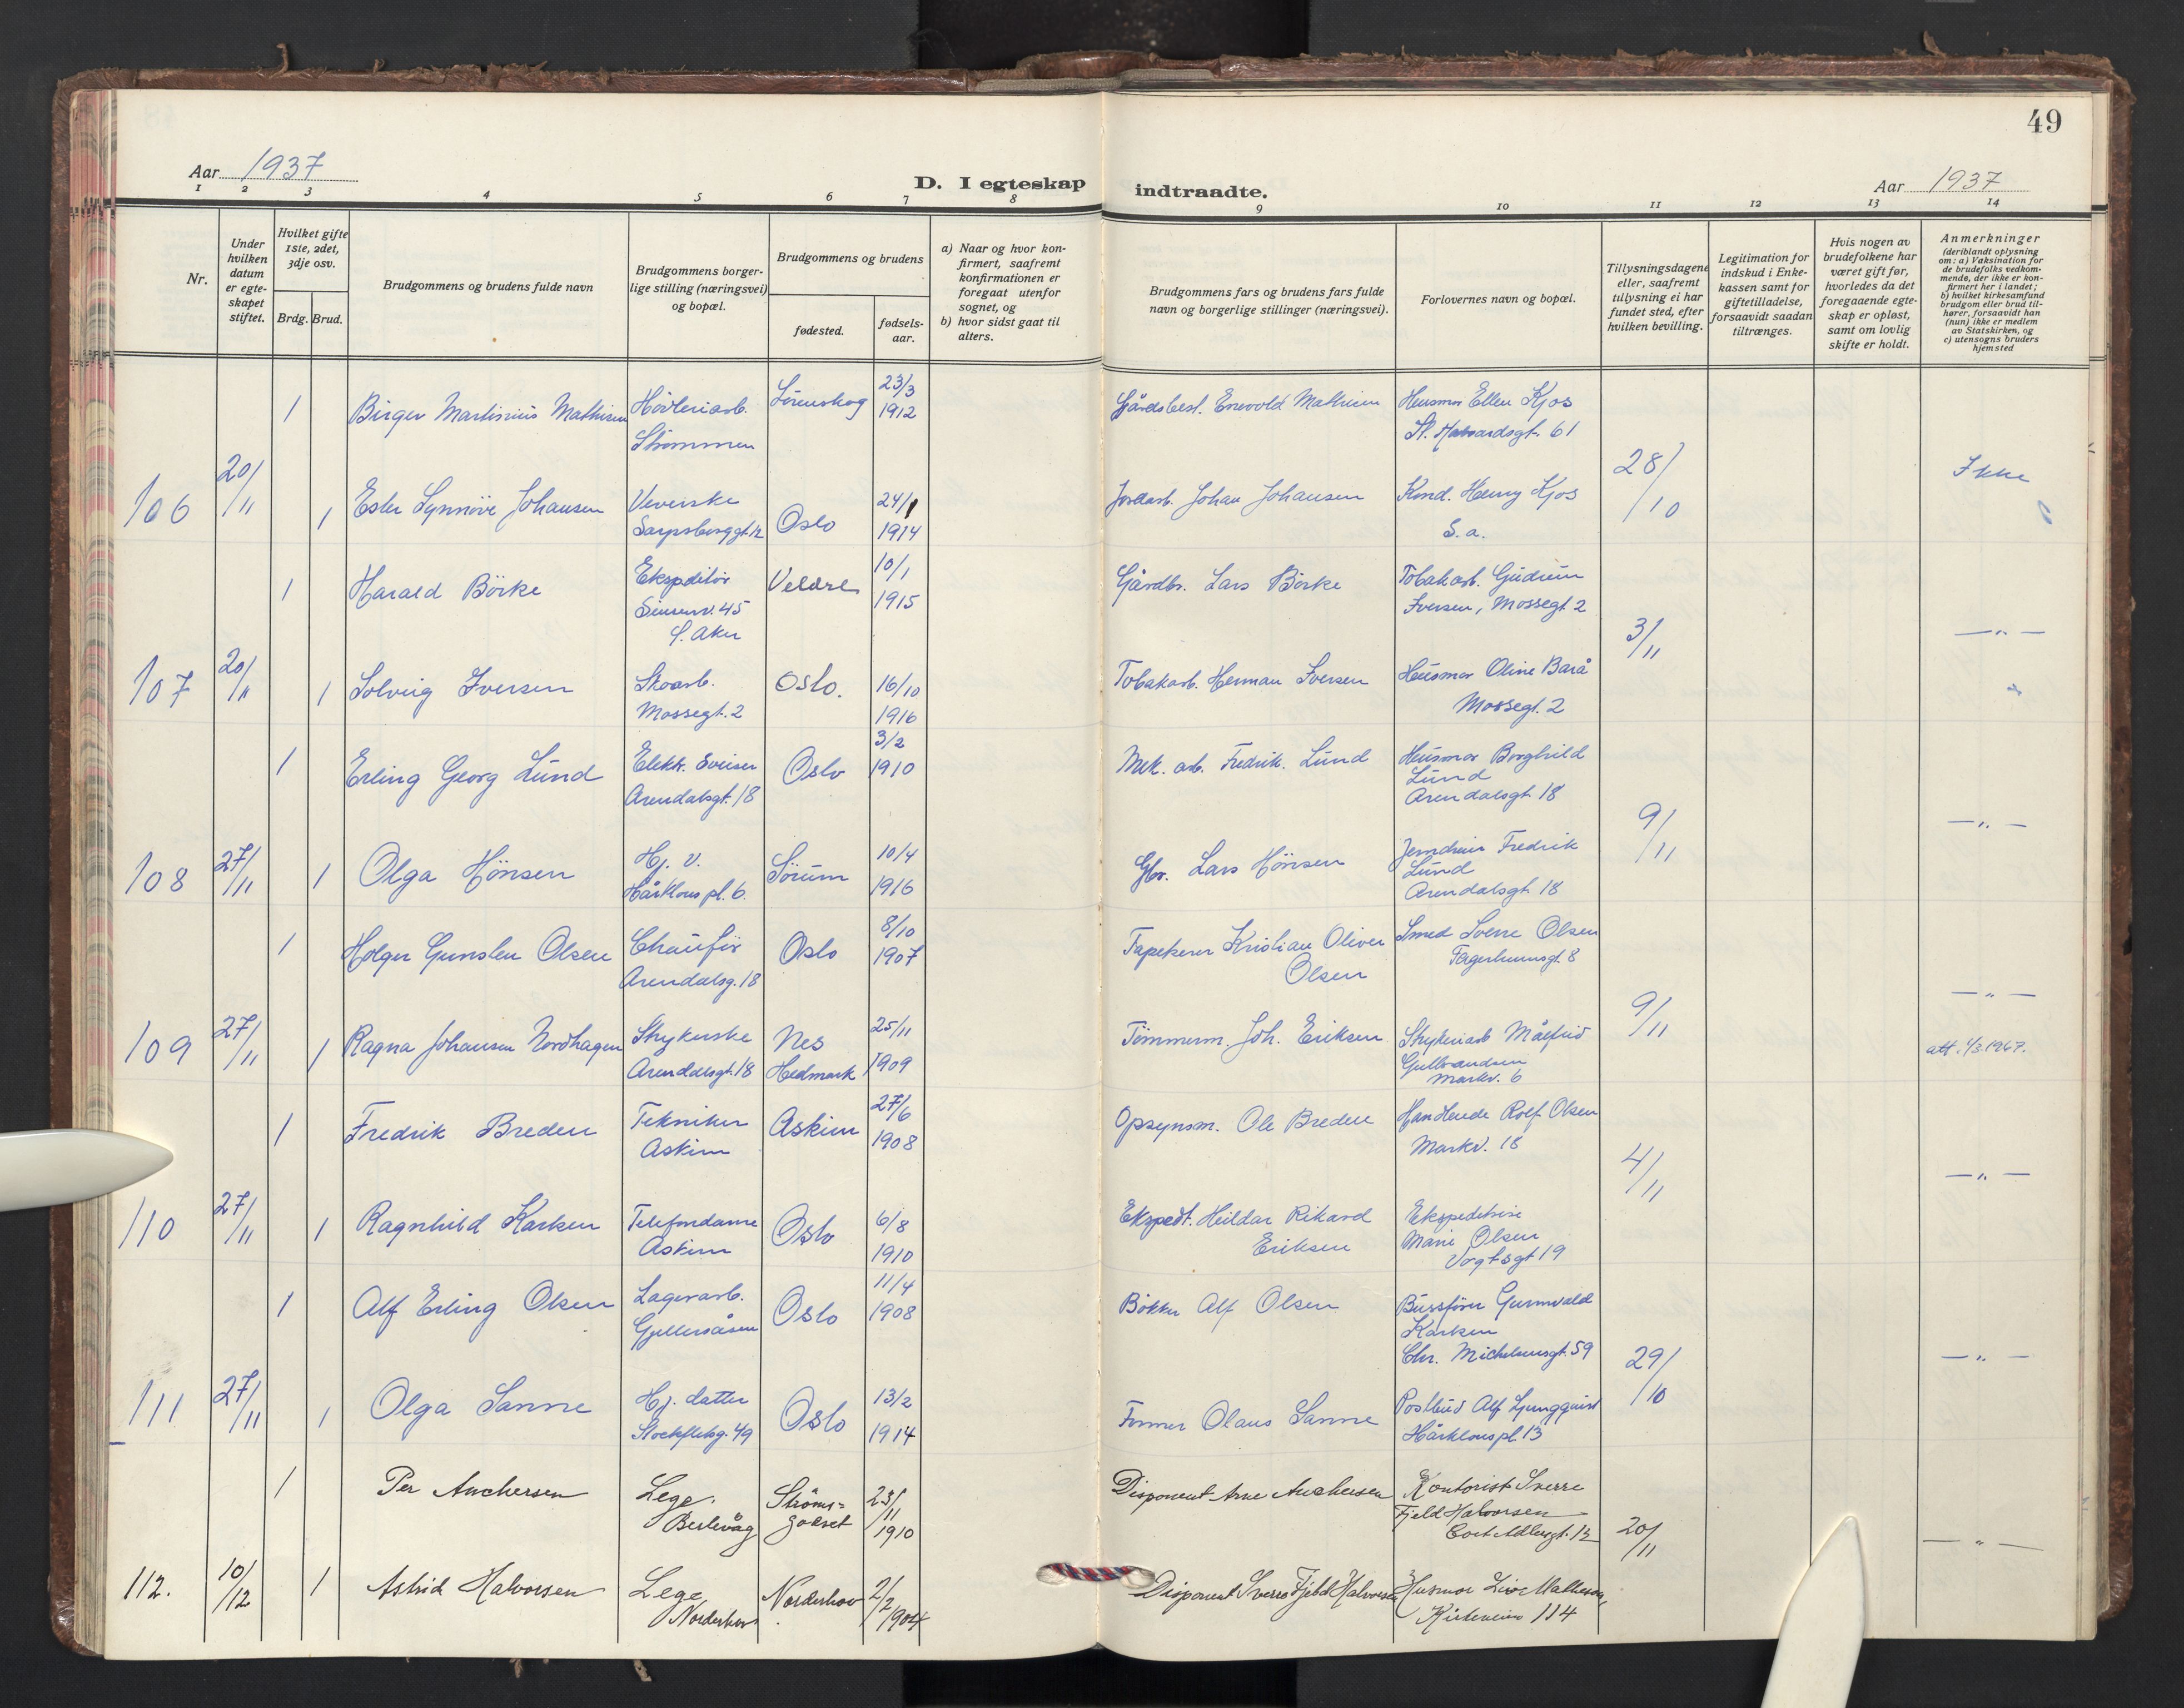 49
Aar 1937
D. I egteskap indtraadte.
Aar 1937
1 2 3 4 5 6 7 8 9 10 11 12 13 14
Nr.
Under hvilken datum er egteskapet stiftet.
Hvilket gifte 1ste, 2det, 3dje osv.
Brdg. Brud.
Brudgommens og brudens fulde navn
Brudgommens borger-
lige stilling (næringsvei)
og bopæl.
Brudgommens og brudens
fødested.
fødsels-
aar.
a) Naar og hvor kon-
firmert, saafremt
konfirmationen er
foregaat utenfor
sognet, og
b) hvor sidst gaat til
alters.
Brudgommens fars og brudens fars fulde
navn og borgerlige stillinger (næringsvei).
Forlovernes navn og bopæl.
Tillysningsdagene
eller, saafremt
tillysning ei har
fundet sted, efter
hvilken bevilling.
Legitimation for
indskud i Enke-
kassen samt for
giftetilladelse,
forsaavidt saadan
tiltrænges.
Hvis nogen av
brudefolkene har
været gift før,
hvorledes da det
foregaaende egte-
skap er opløst,
samt om lovlig
skifte er holdt.
Anmerkninger
(deriblandt oplysning
om: a) Vaksination for
de brudefolks vedkom-
mende, der ikke er kon-
firmert her i landet;
b) hvilket kirkesamfund
brudgom eller brud til-
hører, forsaavidt han
(hun) ikke er medlem
av Statskirken, og
c) utensogns bruders
hjemsted
1 Birger Martinius Mathisen Høvleriarb. Strømmen Lørenskog 23/3 1912 Gårdsbest. Enevold Mathisen Husmor Ellen Kjos St. Halvardsgt. 61
106 20/11 1 Ester Synnöve Johansen Veverske Sarpsborggt. 12 Oslo 24/1 1914 Jordarb. Johan Johansen Kond. Henry Kjos S. a. 28/10 Ikke
1 Harald Börke Ekspeditör Sinsenv. 45 Ö. Aker Veldre 10/1 1915 Gårdbr. Lars Börke Tobakarb. Gudrun Iversen, Mossegt 2
107 20/11 1 Solveig Iversen Skoarb. Mossegt. 2 Oslo. 16/10 1916 Tobakarb. Herman Iversen Husmor Oline Barå Mossegt. 2 3/11 — " —
1 Erling Georg Lund Elektr. Sveiser Arendalsgt. 18 Oslo 3/2 1910 Mek. arb. Fredrik. Lund Husmor Borghild Lund Arendalsgt 18
108 27/11 1 Olga Hönsen Hj. v. Hårklous pl. 6. Sörum 10/4 1916 Gbr. Lars Hönsen Jerndreier Fredrik Lund Arendalsgt. 18 9/11 — " —
1 Holger Gunsten Olsen Chauför Arendalsg. 18 Oslo 8/10 1907 Tapetserer Kristian Oliver Olsen Smed Sverre Olsen Fagerheimsgt. 8
109 27/11 1 Ragna Johansen Nordhagen Strykerske Arendalsgt. 18 Nes Hedmark 25/11 1909 Tömmerm. Joh. Eriksen Strykeriarb Målfrid Gulbrandsen Markv. 6 9/11 — " — att. 1/3.1967.
1 Fredrik Breden Tekniker Askim Askim 27/6 1908 Opsynsm. Ole Breden Handlende Rolf Olsen Markv. 18
110 27/11 1 Ragnhild Karken Telefondame Askim Oslo 6/8 1910 Ekspedt. Hildar Rikard Eriksen Ekspeditrise Marie Olsen Vogtsgt 19 4/11 — " —
1 Alf Erling Olsen Lagerarb. Gjelleråsen Oslo 11/4 1908 Bökker Alf Olsen Bussförer Gunnvald Karken Chr. Michelsensgt. 59
111 27/11 1 Olga Sanne Hj. datter Stockfletsg. 49 Oslo 13/2 1914 Former Olaus Sanne Postbud Alf Ljungquist Hårklouspl. 13 29/10 — " —
1 Per Anchersen Lege. Berlevåg Ströms= godset 23/11 1910 Disponent Arne Anchersen Kontorist Sverre Fjeld Halvorsen Cort Adlersgt. 12
112. 10/12 1 Astrid Halvorsen Lege Norderhov Norderhov 2/2 1904 Disponent Sverre Fjeld Halvorsen Husmor Kirkeveien 114 20/11 — " —